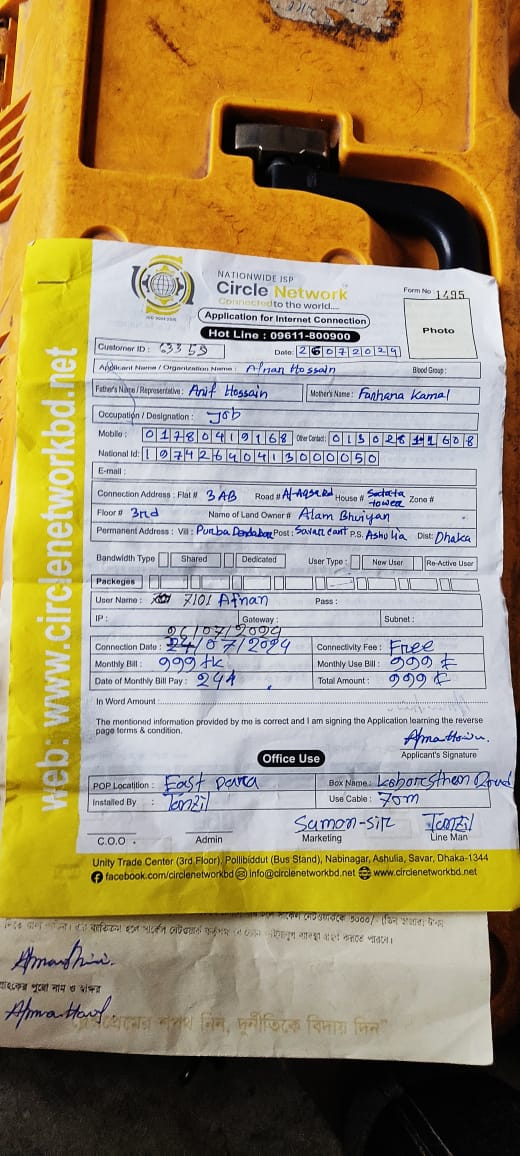 NATIONWIDE ISP
Circle Network
Connected to the world....
Form No : 1495
Application for Internet Connection
Hot Line : 09611-800900
Photo
Customer ID : 63355 Date: 26072024
Applicant Name / Organization Name : Afnan Hossain Blood Group :
Father's Name / Representative : Anif Hossain Mother's Name : Farhana Kamal
Occupation / Designation : Job
Mobile : 01780419168 Other Contact :
National Id: 19742640413000050
E-mail :
Connection Address : Flat # 3AB Road # Al-Aqsa Rd House # tower Zone #
Floor # 3rd Name of Land Owner # Alam Bhuiyan
Permanent Address : Vill : Purba Post : Savar cant P.S. Ashulia Dist: Dhaka
Bandwidth Type Shared Dedicated User Type : New User Re-Active User
Packeges
User Name : 7101 Afnan Pass :
IP : Gateway : Subnet :
26/07/2024
Connection Date : 24/07/2024 Connectivity Fee : Free
Monthly Bill : 999 tk Monthly Use Bill : 999 ৳
Date of Monthly Bill Pay : Total Amount : 999 ৳
In Word Amount :
The mentioned information provided by me is correct and I am signing the Application learning the reverse
page terms & condition.
Applicant's Signature
Office Use
POP Locatition : East para Box Name : Koborsthan Road
Installed By : Tanzil Use Cable : 70m
Sumon-sir Tanzil
C.O.O Admin Marketing Line Man
Unity Trade Center (3rd Floor), Pollibiddut (Bus Stand), Nabinagar, Ashulia, Savar, Dhaka-1344
facebook.com/circlenetworkbd info@circlenetworkbd.net www.circlenetworkbd.net
web: www.circlenetworkbd.net
গ্রাহকের পুরো নাম ও স্বাক্ষর
শপথ নিন, দুর্নীতিকে বিদায় দিন"